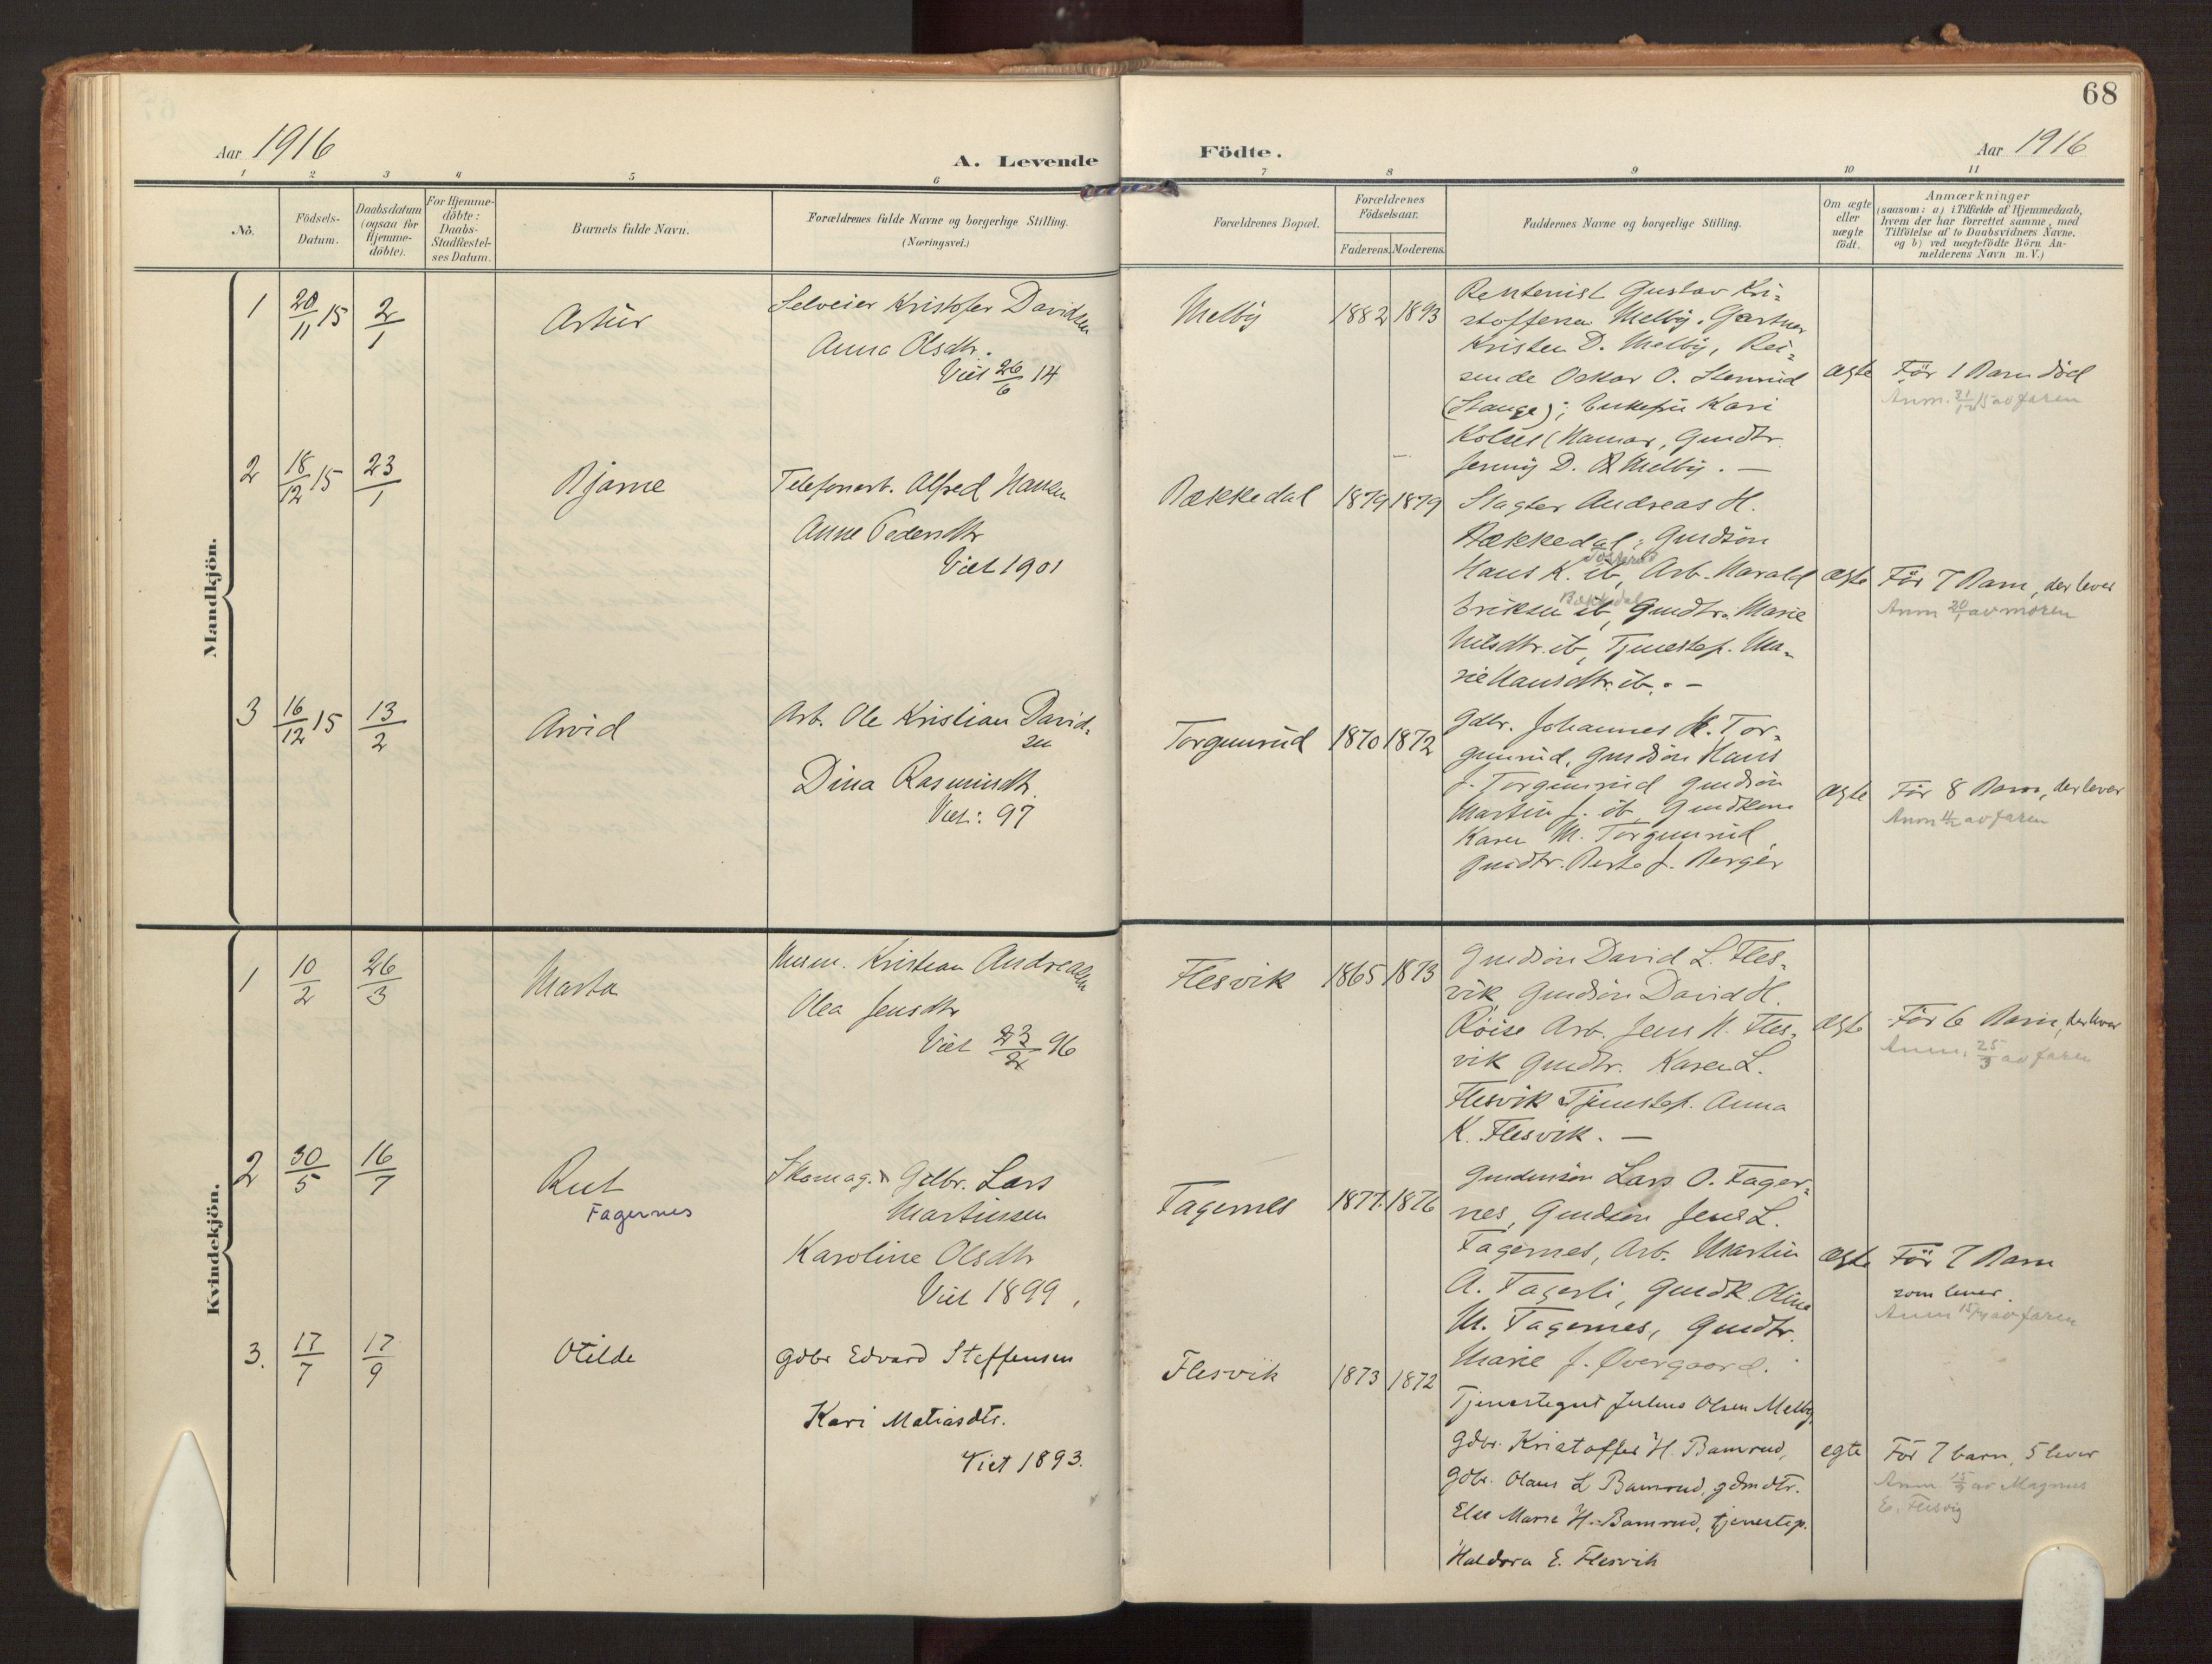 68
Aar 1916
A. Levende
Födte.
Aar 1916
1 2 3 4 5 6 7 8 9 10 11
No.
Födsels-
Datum.
Daabsdatum
(ogsaa for
Hjemme-
döbte).
For Hjemme-
döbte:
Daabs-
Stadfæstel-
ses Datum.
Barnets fulde Navn.
Forældrenes fulde Navne og borgerlige Stilling.
(Næringsvei.)
Forældrenes Bopæl.
Forældrenes
Födselsaar.
Faderens. Moderens.
Faddernes Navne og borgerlige Stilling.
Om ægte
eller
uægte
födt.
Anmærkninger
(saasom: a) i Tilfælde af Hjemmedaab,
hvem der har forrettet samme, med
Tilföielse af to Daabsvidners Navne,
og b) ved uægtefödte Börn An-
melderens Navn m. V.)
Mandkjön.
1
20/11 15
2/1
Artur
Selveier Kristofer Davidsen
Anna Olsdtr.
Viet 26/6 14
Melby
1882 1893
Rentenist Gustav Kri-
stoffersen Melby, Gartner
Kristen D. Melby, Rei-
sende Oskar O. Stenrud
(Stange); Enkefru Kari
Kolset (Hamar, Gmdtr.
Jenny D. Melby. —
ægte
För 1 Barn död
Anm. 31/12 15 av faren
2
18/12 15
23/1
Bjarne
Telefonarb. Alfred Hansen
Anne Pedersdtr
Viet 1901
Bækkedal
1879 1879
Slagter Andreas H.
Bækkedal; Gmdsön
Hans K. ib, Arb. Harald
Eriksen ib, Gmdtr. Marie
Bækkedal
Nilsdtr. ib, Tjenestep. Ma-
rie Hansdtr. ib. -
ægte
För 7 Barn, der lever
Anm 20/1 av moren
3
16/12 15
13/2
Arvid
Arb. Ole Kristian David-
sen
Dina Rasmusdtr.
Viet: 97
Torgunrud
1870 1872
Gdbr. Johannes H. Tor-
gunrud, Gmdsön Hans
J. Torgunrud Gmdsön
Martin J. ib, Gmdkone
Karen M. Torgunrud
Gmdtr. Berte J. Berger
ægte
För 8 Barn, der lever
Anm av faren
Kvindekjön.
1
10/2
26/3
Marta
Husm. Kristian Andreasen
Olea Jensdtr
Viet 23/2 96
Flesvik
1865 1873
Gmdsön David L. Fles-
vik, Gmdsön David H.
Röise Arb. Jens H. Fles-
vik Gmdtr. Karen L.
Flesvik Tjenstep. Anna
K. Flesvik. —
ægte
För 6 Barn, der lever
Anm. 25/3 av faren
2
30/5
16/7
Rut
Fagernes
Skomag. & Gdbr. Lars
Martinsen
Karoline Olsdtr
Viet 1899
Fagernes
1877. 1876
Gmdensön Lars O. Fager-
nes, Gmdsön Jens L.
Fagernes, Arb. Martin
A. Fagerli, Gmdk. Oline
M. Fagernes, Gmdtr.
Marie J. Övergaard.
ægte
För 7 Barn
som lever.
Anm 15/7 av faren
3.
17/7
17/9
Otilde
Gdbr Edvard Steffensen
Kari Matiasdtr.
Viet 1893.
Flesvik
1873 1872
Tjenestegut Julius Olsen Melby
Gdbr. Kristoffer H. Bamrud,
Gdbr. Olaus L Bamrud, gdmdtr.
Else Marie H. Bamrud, tjenestep.
Haldora E. Flesvik
egte
För 7 barn, 5 lever
Anm 15/9 av Magnus
E. Flesvig